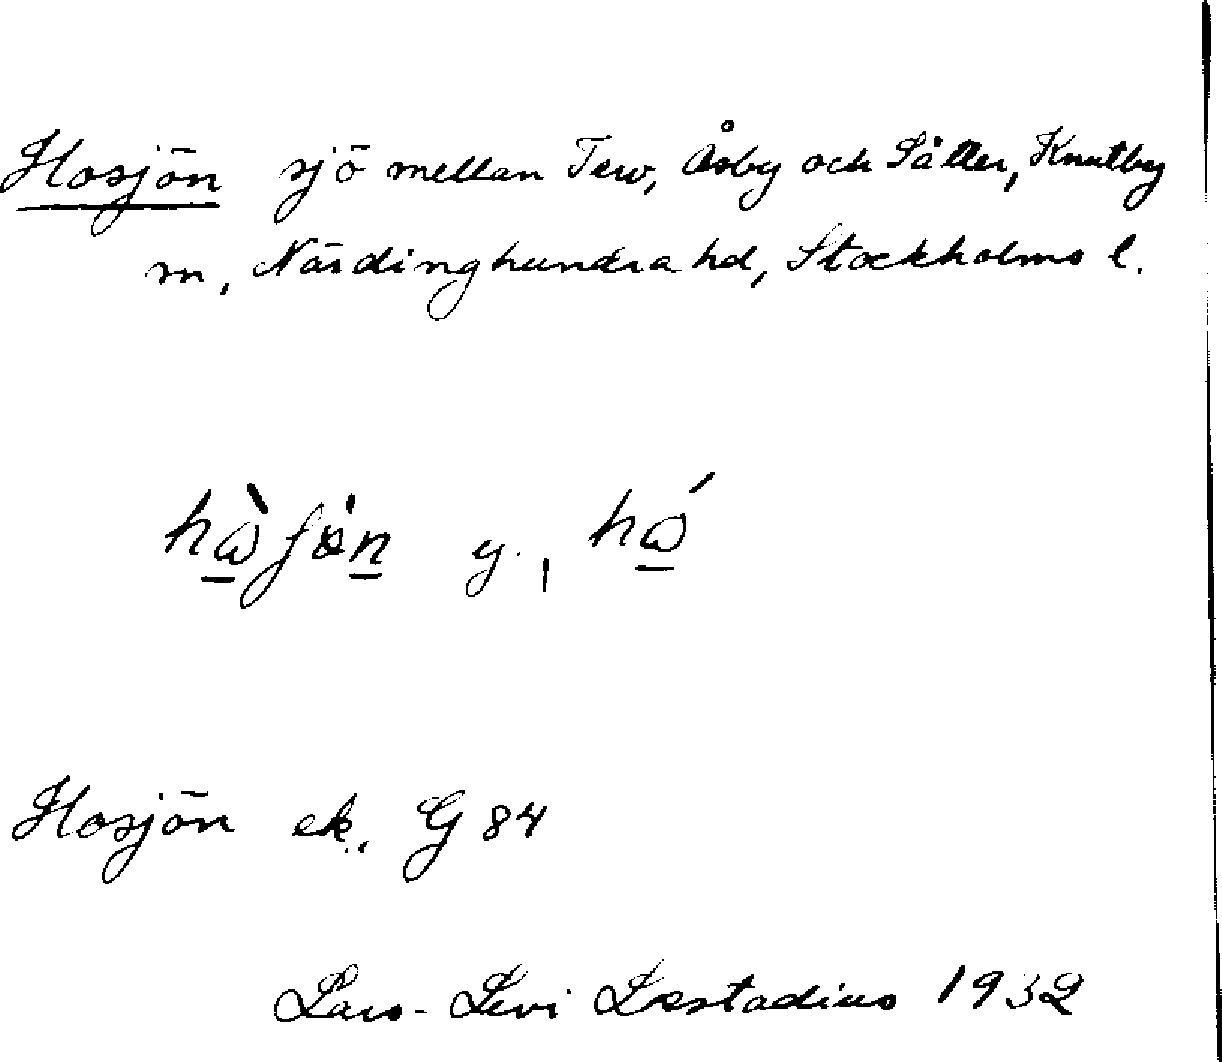 Hosjön sjö mellan Terv, Åsby och Sätter, Knutby
m, Närdinghundra hd, Stockholms l.
y., 
Hosjön ek. G 84
Lars-Levi Læstadius 1932